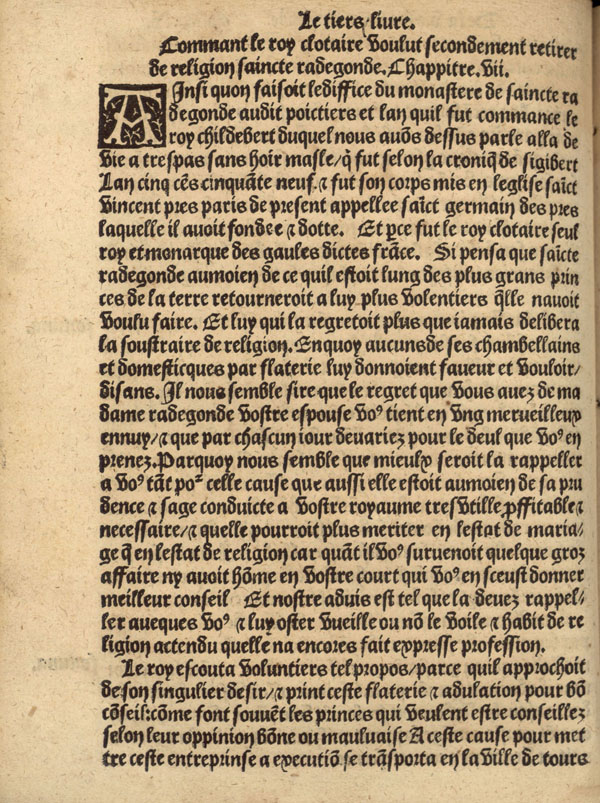 Le tiers liure.
Commant le roy clotaire voulut secondement retirer
de religion saincte radegonde. Chappitre. vii.
AInsi quon faisoit lediffice du monastere de saincte ra
degonde audit poictiers et lan quil fut commance le
roy childebert duquel nous auõs dessus parle alla de
vie a trespas sans hoir masle/q̃ fut selon la croniq̃ de sigibert
Lan cinq cẽs cinquãte neuf. ⁊ fut son corps mis en leglise saĩct
vincent pres paris de present appellee saĩct germain des pres
laquelle il auoit fondee ⁊ dotte. Et ꝑce fut le roy clotaire seul
roy et monarque des gaules dictes frãce. Si pensa que saĩcte
radegonde aumoien de ce quil estoit lung des plus grans prin
ces de la terre retourneroit a luy plus volentiers q̃lle nauoit
voulu faire. Et luy qui la regretoit plus que iamais delibera
la soustraire de religion. En quoy aucuns de ses chambellains
et domesticques par flaterie luy donnoient faueur et vouloir/
disans. Il nous semble sire que le regret que vous auez de ma
dame radegonde vostre espouse voꝰ tient en vng merueilleux
ennuy/⁊ que par chascun iour deuariez pour le deul que voꝰ en
prenez. Parquoy nous semble que mieulx seroit la rappeller
a voꝰ tãt poꝛ celle cause que aussi elle estoit aumoien de sa pru
dence ⁊ sage conduicte a vostre royaume tresvtille ꝓffitable ⁊
necessaire/⁊ quelle pourroit plus meriter en lestat de maria-
ge q̃ en lestat de religion car quãt il voꝰ suruenoit quelque groz
affaire ny auoit hõme en vostre court qui voꝰ en sceust donner
meilleur conseil Et nostre aduis est tel que la deuez rappel-
ler aueques voꝰ ⁊ luy oster vueille ou nõ le voile ⁊ habit de re
ligion actendu quelle na encores fait expresse profession.
Le roy escouta voluntiers tel propos/parce quil approchoit
de son singulier desir/⁊ print ceste flaterie ⁊ adulation pour bõ
cõseil: cõme font souuẽt les princes qui veulent estre conseillez
selon leur oppinion bõne ou mauluaise A ceste cause pour met
tre ceste entreprinse a executiõ se trãsporta en la ville de tours